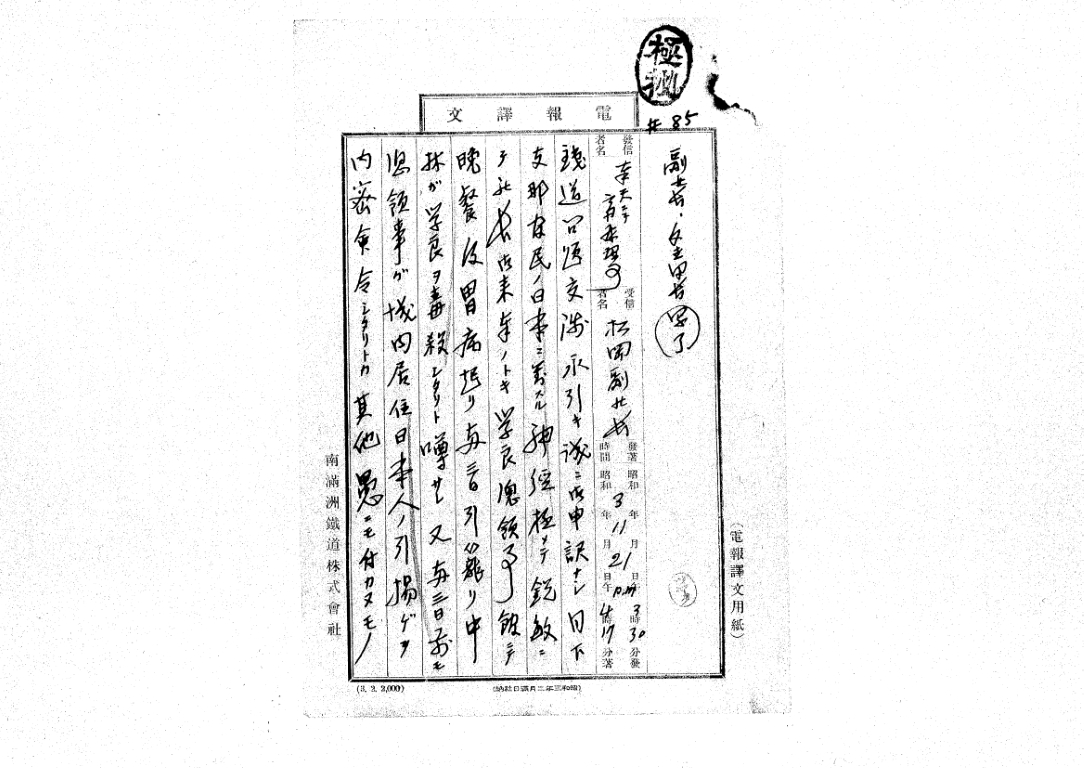 極秘
#85
電報譯文
副社長、
写了
發信者名 奉天ニテ
受信者名 松岡副社長
發著時間 昭和3年11月21日午P.M.3時30分發
昭和 年 月 日午4時17分著
鐵道問題交渉永引キ誠ニ御申訳ナシ目下
支那官民ノ日本ニ対スル神経極メテ鋭敏ニ
テ社長御来奉ノトキ学良總領事館ニテ
晩餐後胃病起リ両三日引籠リ中
林ガ学良ヲ毒殺シタリト噂サレ又両三日前モ
總領事ガ城内居住日本人ノ引揚ゲヲ
内密命令シタリトカ其他愚ニモ付カヌモノ
南滿洲鐵道株式會社
(電報譯文用紙)
(3. 2. 2,000)